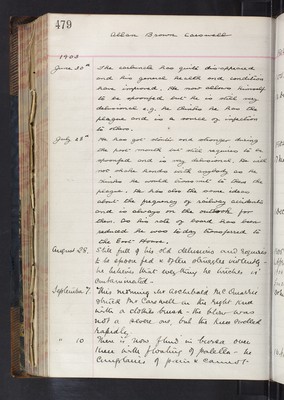 479
Allan Brown Carswell
1903
June 30th The carbuncle has quite disappeared
and his general health and condition
have improved. He now allows himself
to be spoonfed but he is still very
delusional e.g. he thinks he has the
plague and is a source of infection
to others.
July 28th He has got stouter and stronger during
the past month but still requires to be
spoonfed and is very delusional. He will
not shake hands with anybody as he
thinks he would transmit to them the
plague. He has also the same ideas
about the frequency of railway accidents
and is always on the outlook for
them. As his of has been
reduced he was today transferred to
the East House.
August 28. Still full of his old delusions and requires
to be spoon fed & often struggles violently.
he believes that everything he touches is
contaminated.
September 7. This morning Mr Archibald Mc
struck Mr Carswell on the right knee
with a clothes brush - the blow was
not a severe one, but the knee swelled
rapidly.
" 10 There is now fluid in bursa over
knee with floating of patella - he
complains of pain & cannot